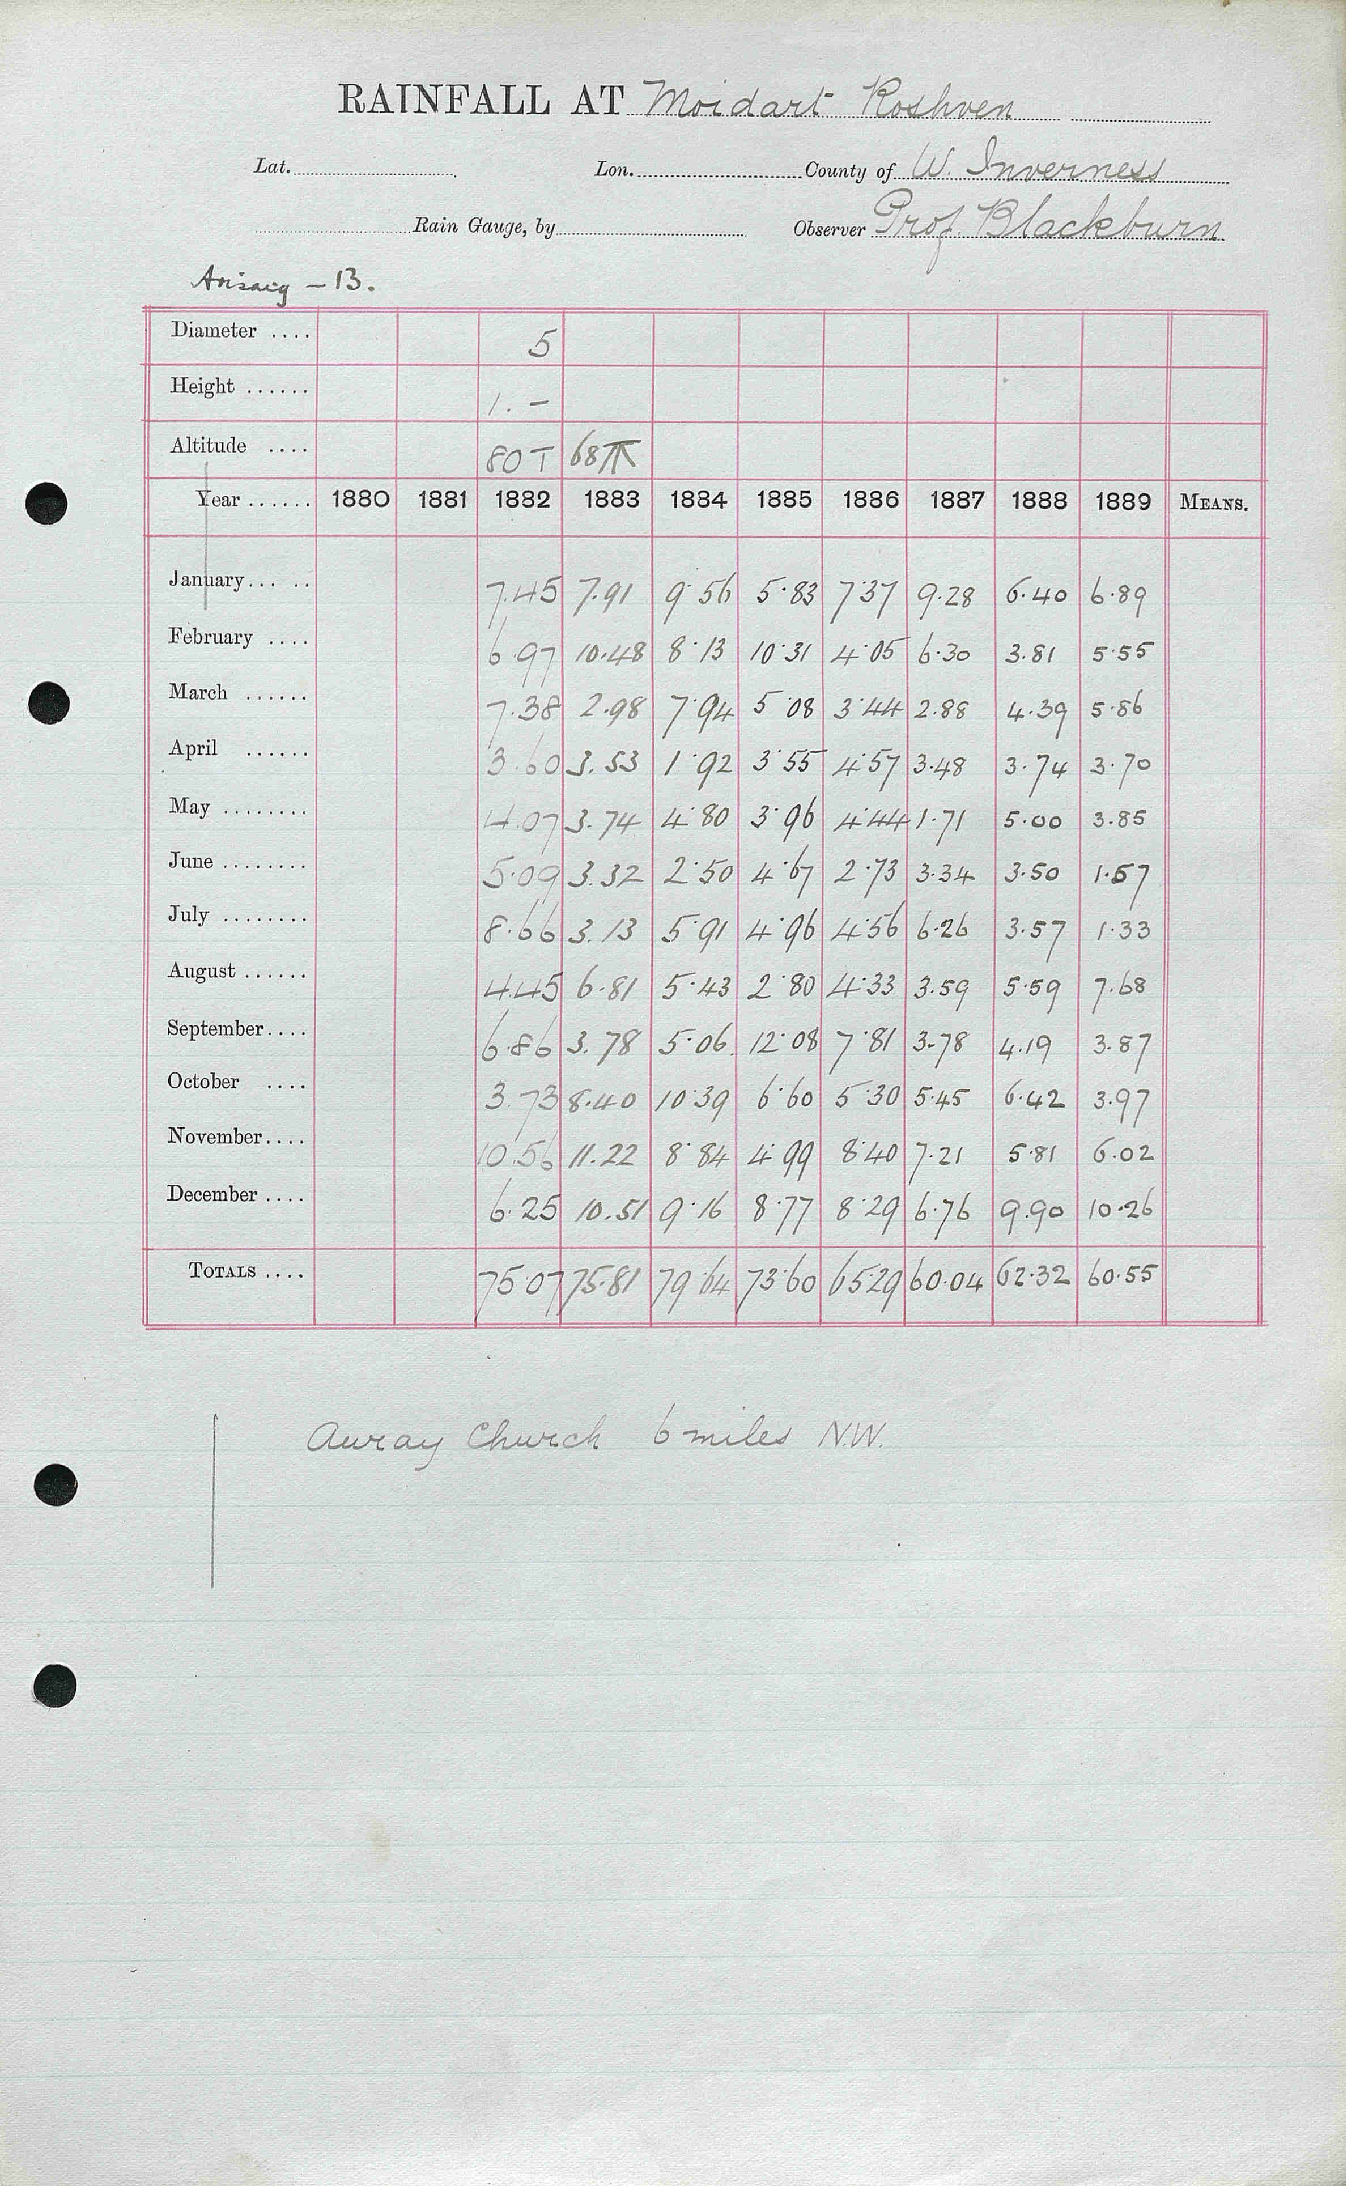 RAINFALL AT Moidart Roshven
Lat. Lon. County of W. Inverness
Rain Gauge, by Observer Prof Blackburn
Arisaig - 13.
Diameter .... 5
Height ...... 1. -
Altitude .... 80 T 68
Year ...... 1880 1881 1882 1883 1884 1885 1886 1887 1888 1889 MEANS.
January... .. 7.45 7.91 9.56 5.83 7.37 9.28 6.40 6.89
February .... 6.97 10.48 8.13 10.31 4.05 6.30 3.81 5.55
March ...... 7.38 2.98 7.94 5.08 3.44 2.88 4.39 5.86
April ...... 3.60 3.53 1.92 3.55 4.57 3.48 3.74 3.70
May ........ 4.07 3.74 4.80 3.96 4.44 1.71 5.00 3.85
June ........ 5.09 3.32 2.50 4.67 2.73 3.34 3.50 1.57
July ........ 8.66 3.13 5.91 4.96 4.56 6.26 3.57 1.33
August ...... 4.45 6.81 5.43 2.80 4.33 3.59 5.59 7.68
September.... 6.86 3.78 5.06 12.08 7.81 3.78 4.19 3.87
October .... 3.73 8.40 10.39 6.60 5.30 5.45 6.42 3.97
November.... 10.56 11.22 8.84 4.99 8.40 7.21 5.81 6.02
December .... 6.25 10.51 9.16 8.77 8.29 6.76 9.90 10.26
TOTALS .... 75.07 75.81 79.64 73.60 65.29 60.04 62.32 60.55
Church 6 miles N.W.